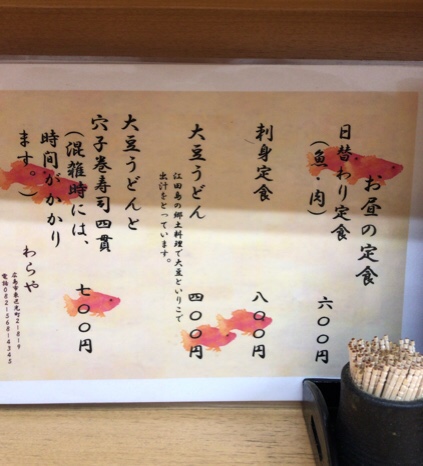 お昼の定食
日替わり定食
(魚 肉) 六〇〇円
刺身定食 八〇〇円
大豆うどん 四〇〇円
江田島の郷土料理で大豆といりこで
出汁をとっています。
大豆うどんと
穴子巻寿司四貫 七〇〇円
(混雑時には、
時間がかかり
ます。)
わらや
広島市東荒神町2-8-19
電話082-568-4345